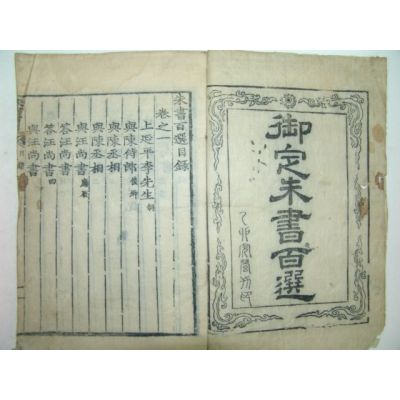 御定朱書百選
乙卯
朱書百選目錄
卷之一
上延平李先生 侗
與陳侍郎 俊卿
與陳丞相
與陳丞相
與汪尚書 應辰
答汪尚書
答汪尚書 四
與汪尚書